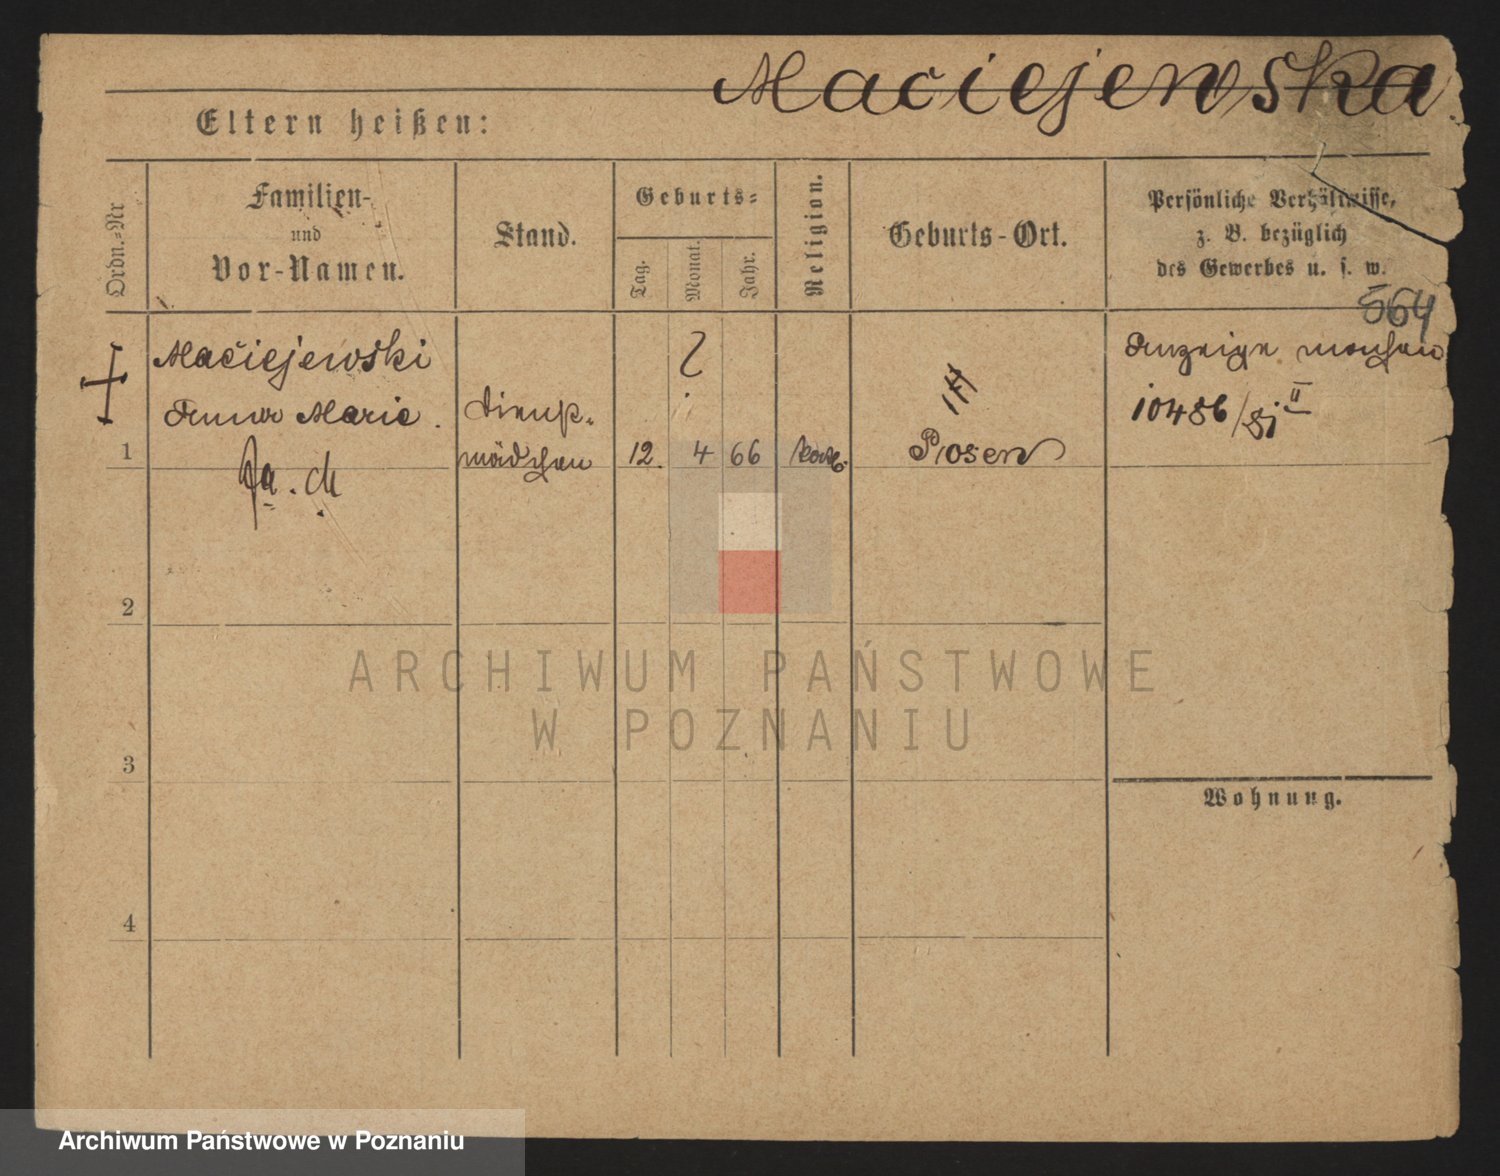 Maciejewska
Eltern heißen:
Ordn.-Nr
Familien-
und
Vor-Namen.
Stand.
Geburts-
Tag.
Monat.
Jahr.
Religion.
Geburts-Ort.
Persönliche Verhältnisse,
z. B. bezüglich
des Gewerbes u. s. w.
564
1
Maciejewski
Anna Marie.
Dienst-
mädchen
12. 4 66
kath.
Posen
Anzeige machen
10486/81 II
2
3
4
Wohnung.
ARCHIWUM PAŃSTWOWE
W POZNANIU
Archiwum Państwowe w Poznaniu